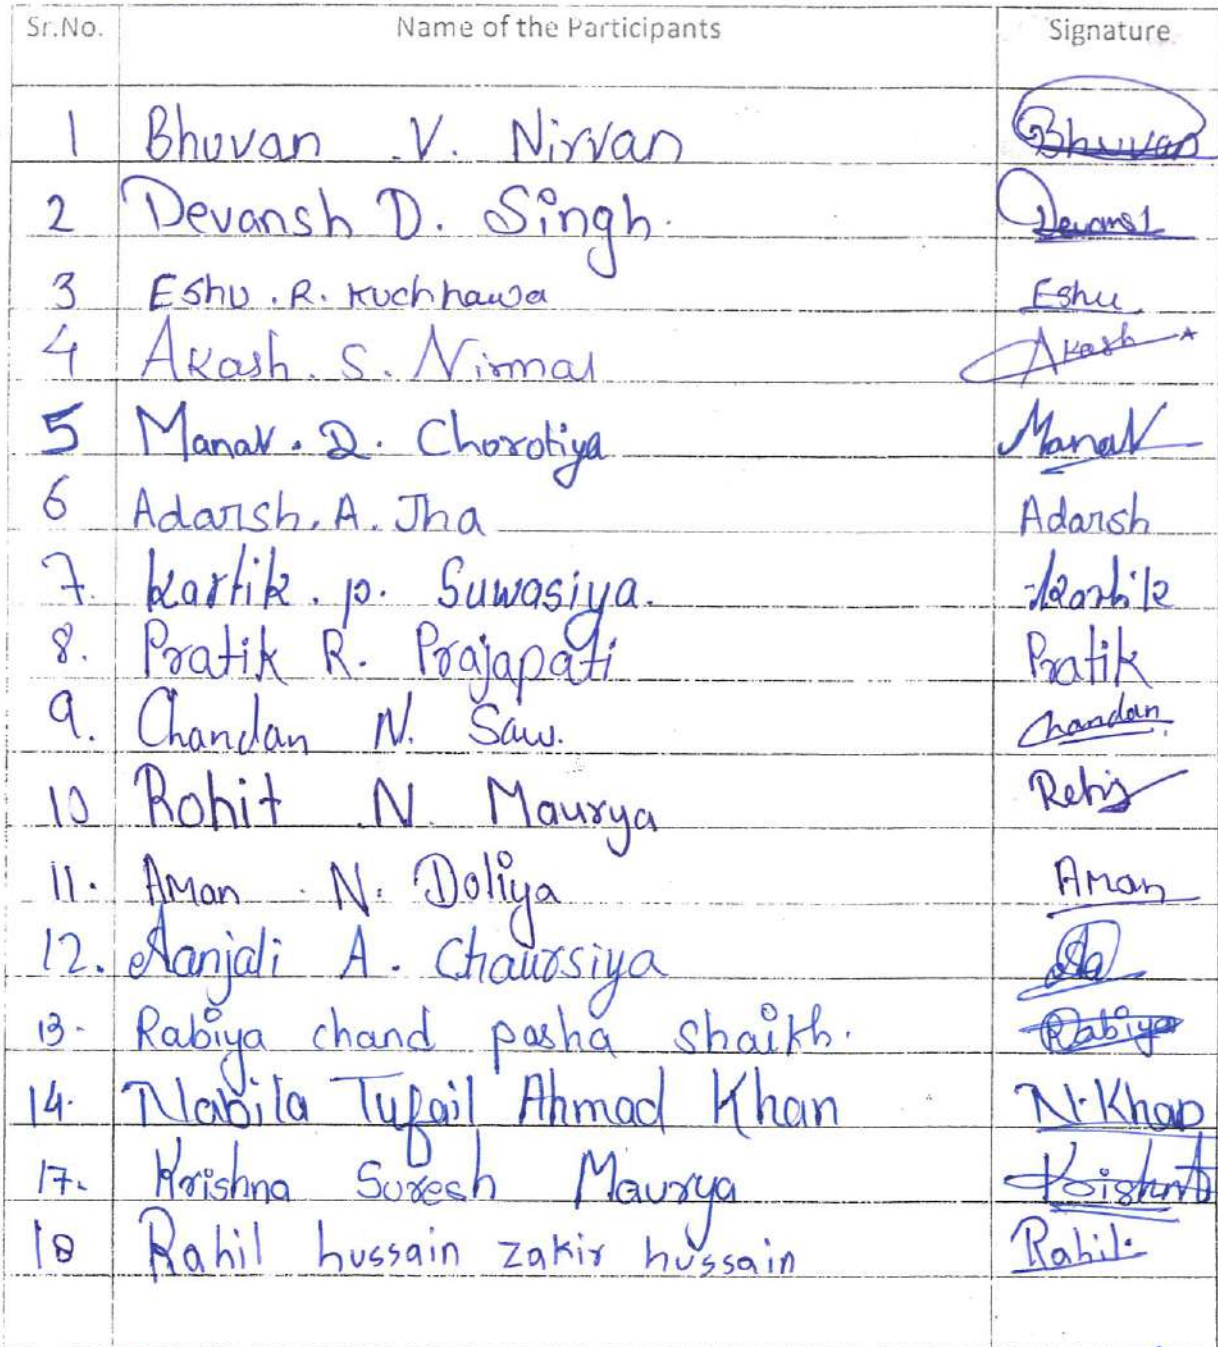 Sr.No. Name of the Participants Signature
1 Bhuvan .V. Nirvan Bhuvan
2 Devansh D. Singh. Devansh
3 Eshu .R. Kuchhawa Eshu
4 Akash. S. Nirmal Akash
5 Manav. D. Chorotiya Manav
6 Adarsh. A. Jha Adarsh
7. Kartik. p. Suwasiya. Kartik
8. Pratik R. Prajapati Pratik
9. Chandan N. Saw. Chandan
10 Rohit N Maurya
11. Aman N. Doliya Aman
12. Aanjali A. Chaursiya
13. Rabiya chand pasha shaikh. Rabiya
14. Nabila Tufail Ahmad Khan N.Khan
17. Krishna Suresh Maurya Krishna
18 Rahil hussain zakir hussain Rahil